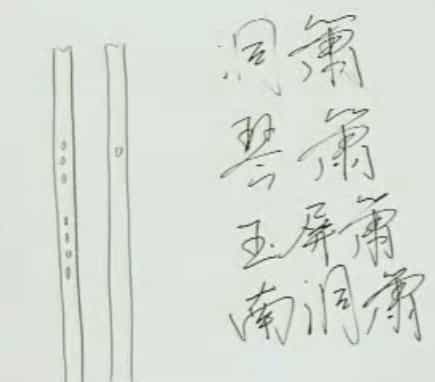 洞箫
琴箫
玉屏箫
南洞箫